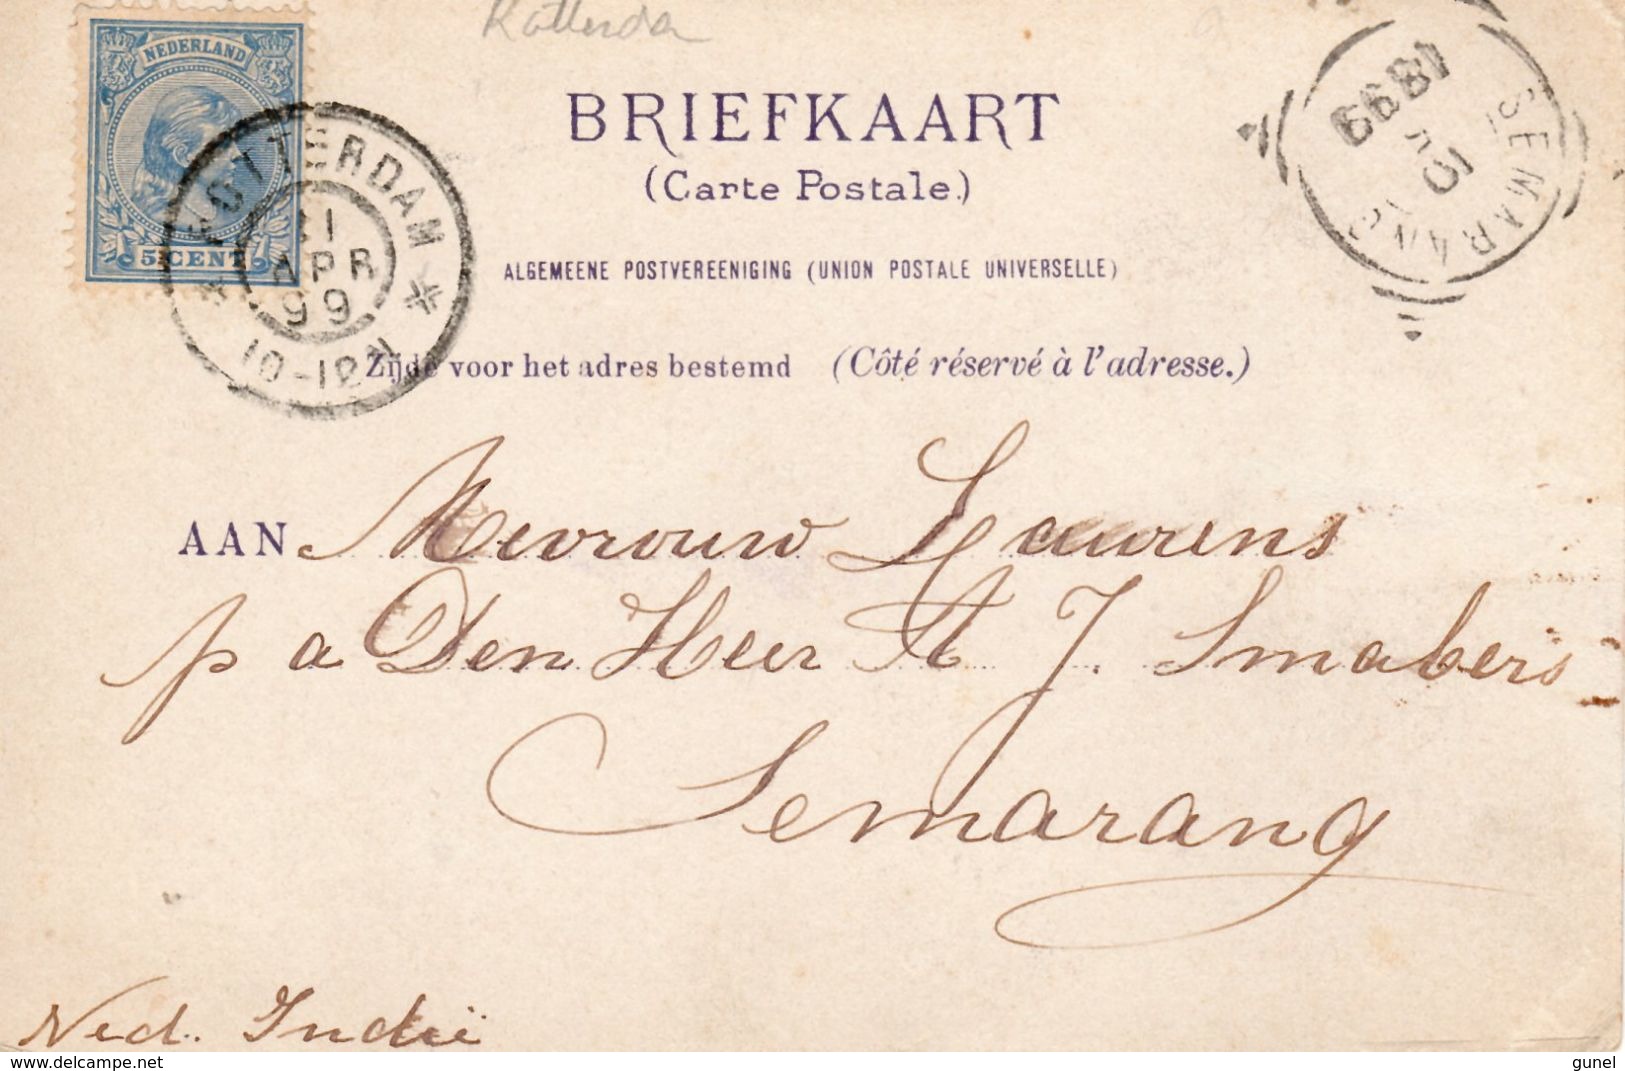 Rotterdam
NEDERLAND
5 CENT
ROTTERDAM
21
APR
99
10-12N
SEMARANG
1899
BRIEFKAART
(Carte Postale.)
ALGEMEENE POSTVEREENIGING (UNION POSTALE UNIVERSELLE)
Zijde voor het adres bestemd (Côté réservé à l'adresse.)
AAN Mevrouw Laurens
p a Den Heer A J. Smabers
Semarang
Ned. Indië
delcampe.net
gunel